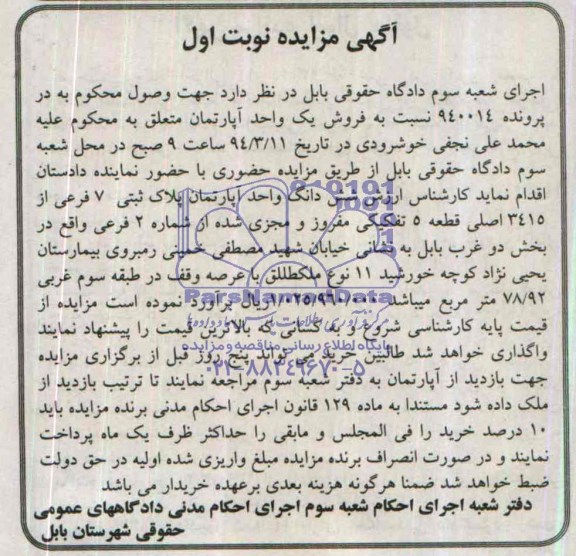 آگهی مزایده نوبت اول
اجرای شعبه سوم دادگاه حقوقی بابل در نظر دارد جهت وصول محکوم به در
پرونده ۹۴۰۰۱۴ نسبت به فروش یک واحد آپارتمان متعلق به محکوم علیه
محمد علی نجفی خوشرودی در تاریخ ۹۴/۳/۱۱ ساعت ۹ صبح در محل شعبه
سوم دادگاه حقوقی بابل از طریق مزایده حضوری با حضور نماینده دادستان
اقدام نماید کارشناس ارزش شش دانگ واحد آپارتمان پلاک ثبتی ۷ فرعی از
۳۴۱۵ اصلی قطعه ۵ تفکیکی مفروز و مجزی شده از شماره ۲ فرعی واقع در
بخش دو غرب بابل به نشانی خیابان شهید مصطفی خمینی رمبروی بیمارستان
یحیی نژاد کوچه خورشید ۱۱ نوع ملکطللق با عرصه وقف در طبقه سوم غربی
۷۸/۹۲ متر مربع میباشد ریال برآورد نموده است مزایده از
قیمت پایه کارشناسی شروع و به کسانی که بالاترین قیمت را پیشنهاد نمایند
واگذاری خواهد شد طالبین خرید می تواند پنج روز قبل از برگزاری مزایده
جهت بازدید از آپارتمان به دفتر شعبه سوم مراجعه نمایند تا ترتیب بازدید از
ملک داده شود مستندا به ماده ۱۲۹ قانون اجرای احکام مدنی برنده مزایده باید
۱۰ درصد خرید را فی المجلس و مابقی را حداکثر ظرف یک ماه پرداخت
نمایند و در صورت انصراف برنده مزایده مبلغ واریزی شده اولیه در حق دولت
ضبط خواهد شد ضمنا هرگونه هزینه بعدی برعهده خریدار می باشد
دفتر شعبه اجرای احکام شعبه سوم اجرای احکام مدنی دادگاههای عمومی
حقوقی شهرستان بابل
ParsNamadData
پایگاه اطلاع رسانی مناقصه و مزایده
۰۲۱-۸۸۳۴۹۶۷۰-۵